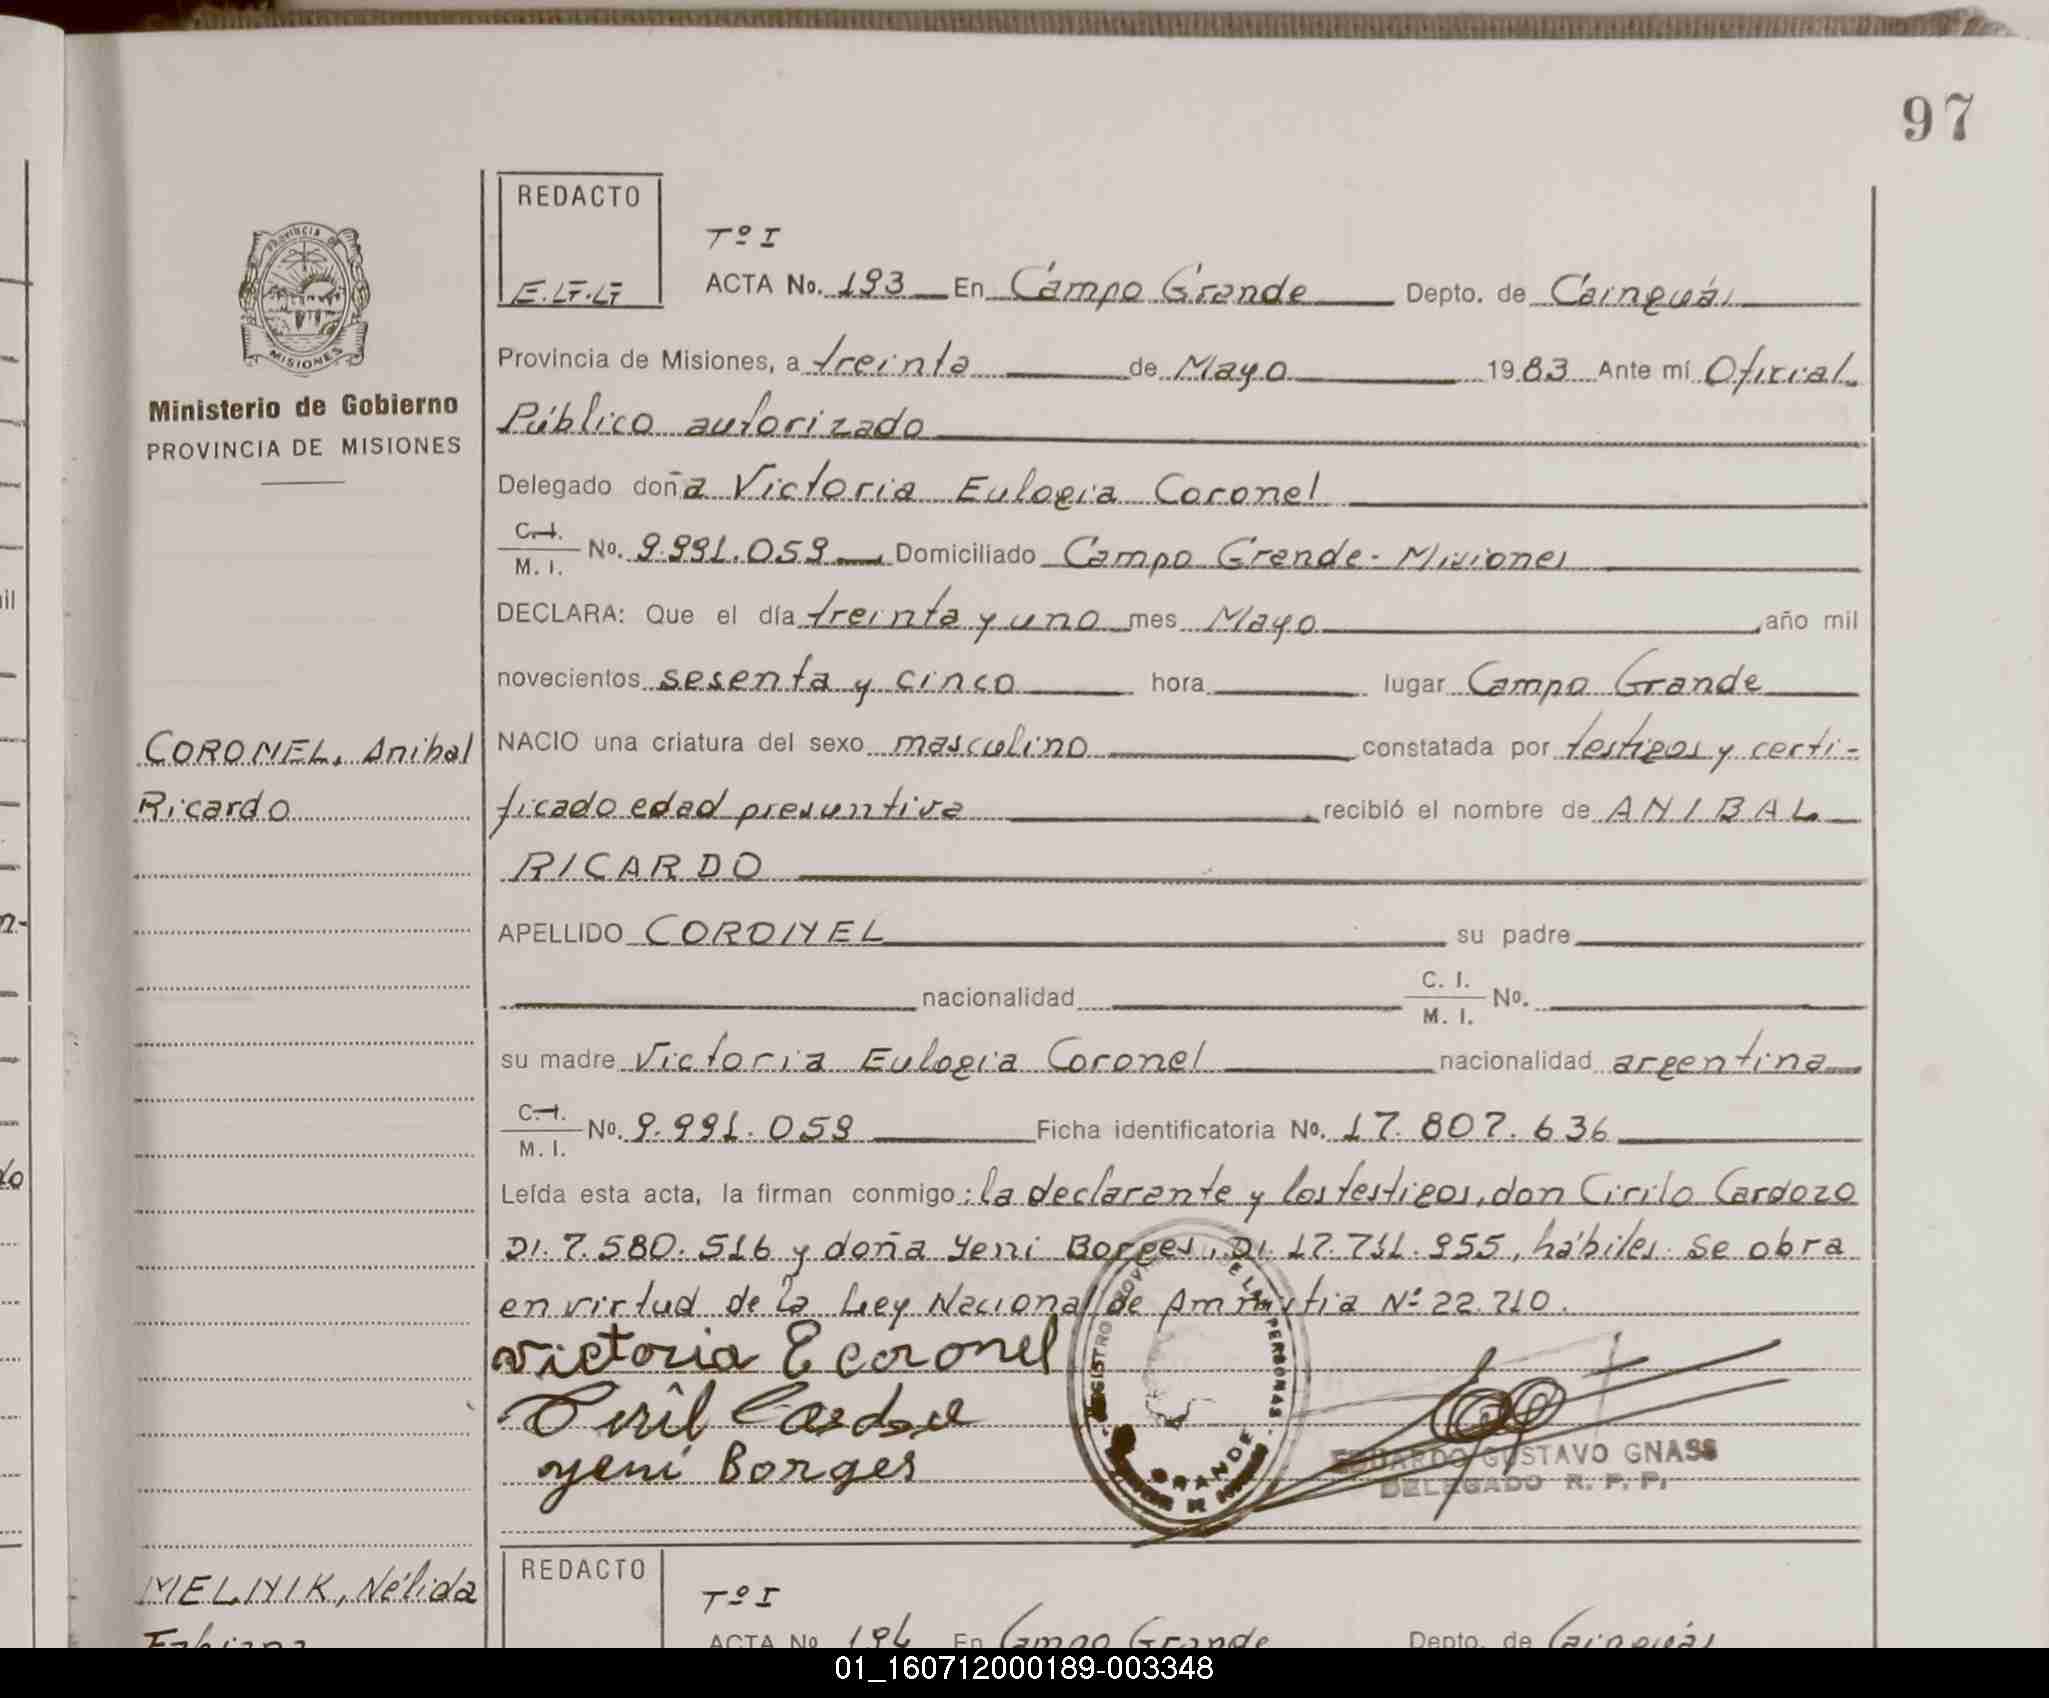 97
REDACTO
E.LF.LF
Tº I
PROVINCIA DE
MISIONES
Ministerio de Gobierno
PROVINCIA DE MISIONES
ACTA No. 193 En Campo Grande Depto. de Cainguás
Provincia de Misiones, a treinta de Mayo 1983 Ante mí Oficial
Público autorizado
Delegado doña Victoria Eulogia Coronel
C. I. / M. I. No. 9.991.059 Domiciliado Campo Grande - Misiones
DECLARA: Que el día treinta y uno mes Mayo, año mil
novecientos sesenta y cinco hora lugar Campo Grande
CORONEL, Anibal
Ricardo
NACIO una criatura del sexo masculino constatada por testigos y certi-
ficado edad presuntiva recibió el nombre de ANIBAL
RICARDO
APELLIDO CORONEL su padre
nacionalidad C. I. / M. I. No.
su madre Victoria Eulogia Coronel nacionalidad argentina
C. I. / M. I. No. 9.991.059 Ficha identificatoria No. 17.807.636
Leída esta acta, la firman conmigo: la declarante y los testigos, don Cirilo Cardozo
DI. 7.580.516 y doña Yeni Borges, DI. 17.711.955, hábiles. Se obra
en virtud de la Ley Nacional de Amnistia Nº 22.710.
Victoria E coronel
yeni Borges
GRANDE
EDUARDO GUSTAVO GNASS
DELEGADO R. P. P.
REDACTO
MELNIK, Nélida
Fabiana
Tº I
ACTA No 194 En Campo Grande Depto. de Cainguás
01_160712000189-003348